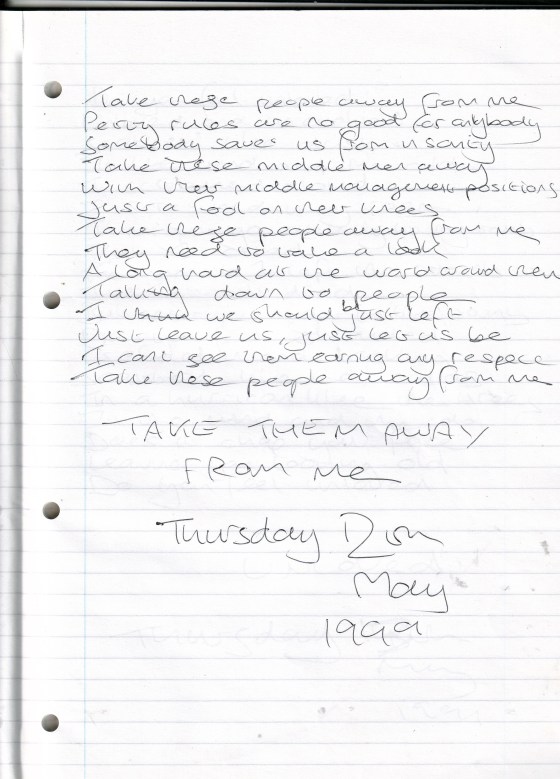 Take these people away from me
Petty rules are no good for anybody
Somebody save us from insanity
Take these middle men away
With their middle management positions
Just a fool on their knees
Take these people away from me
They need to take a look
A long hard at the world around them
Talking down to people
I think we should be just left
Just leave us, just let us be
I cant see them earning any respect
Take these people away from me
TAKE THEM AWAY
FROM me
Thursday
May
1999